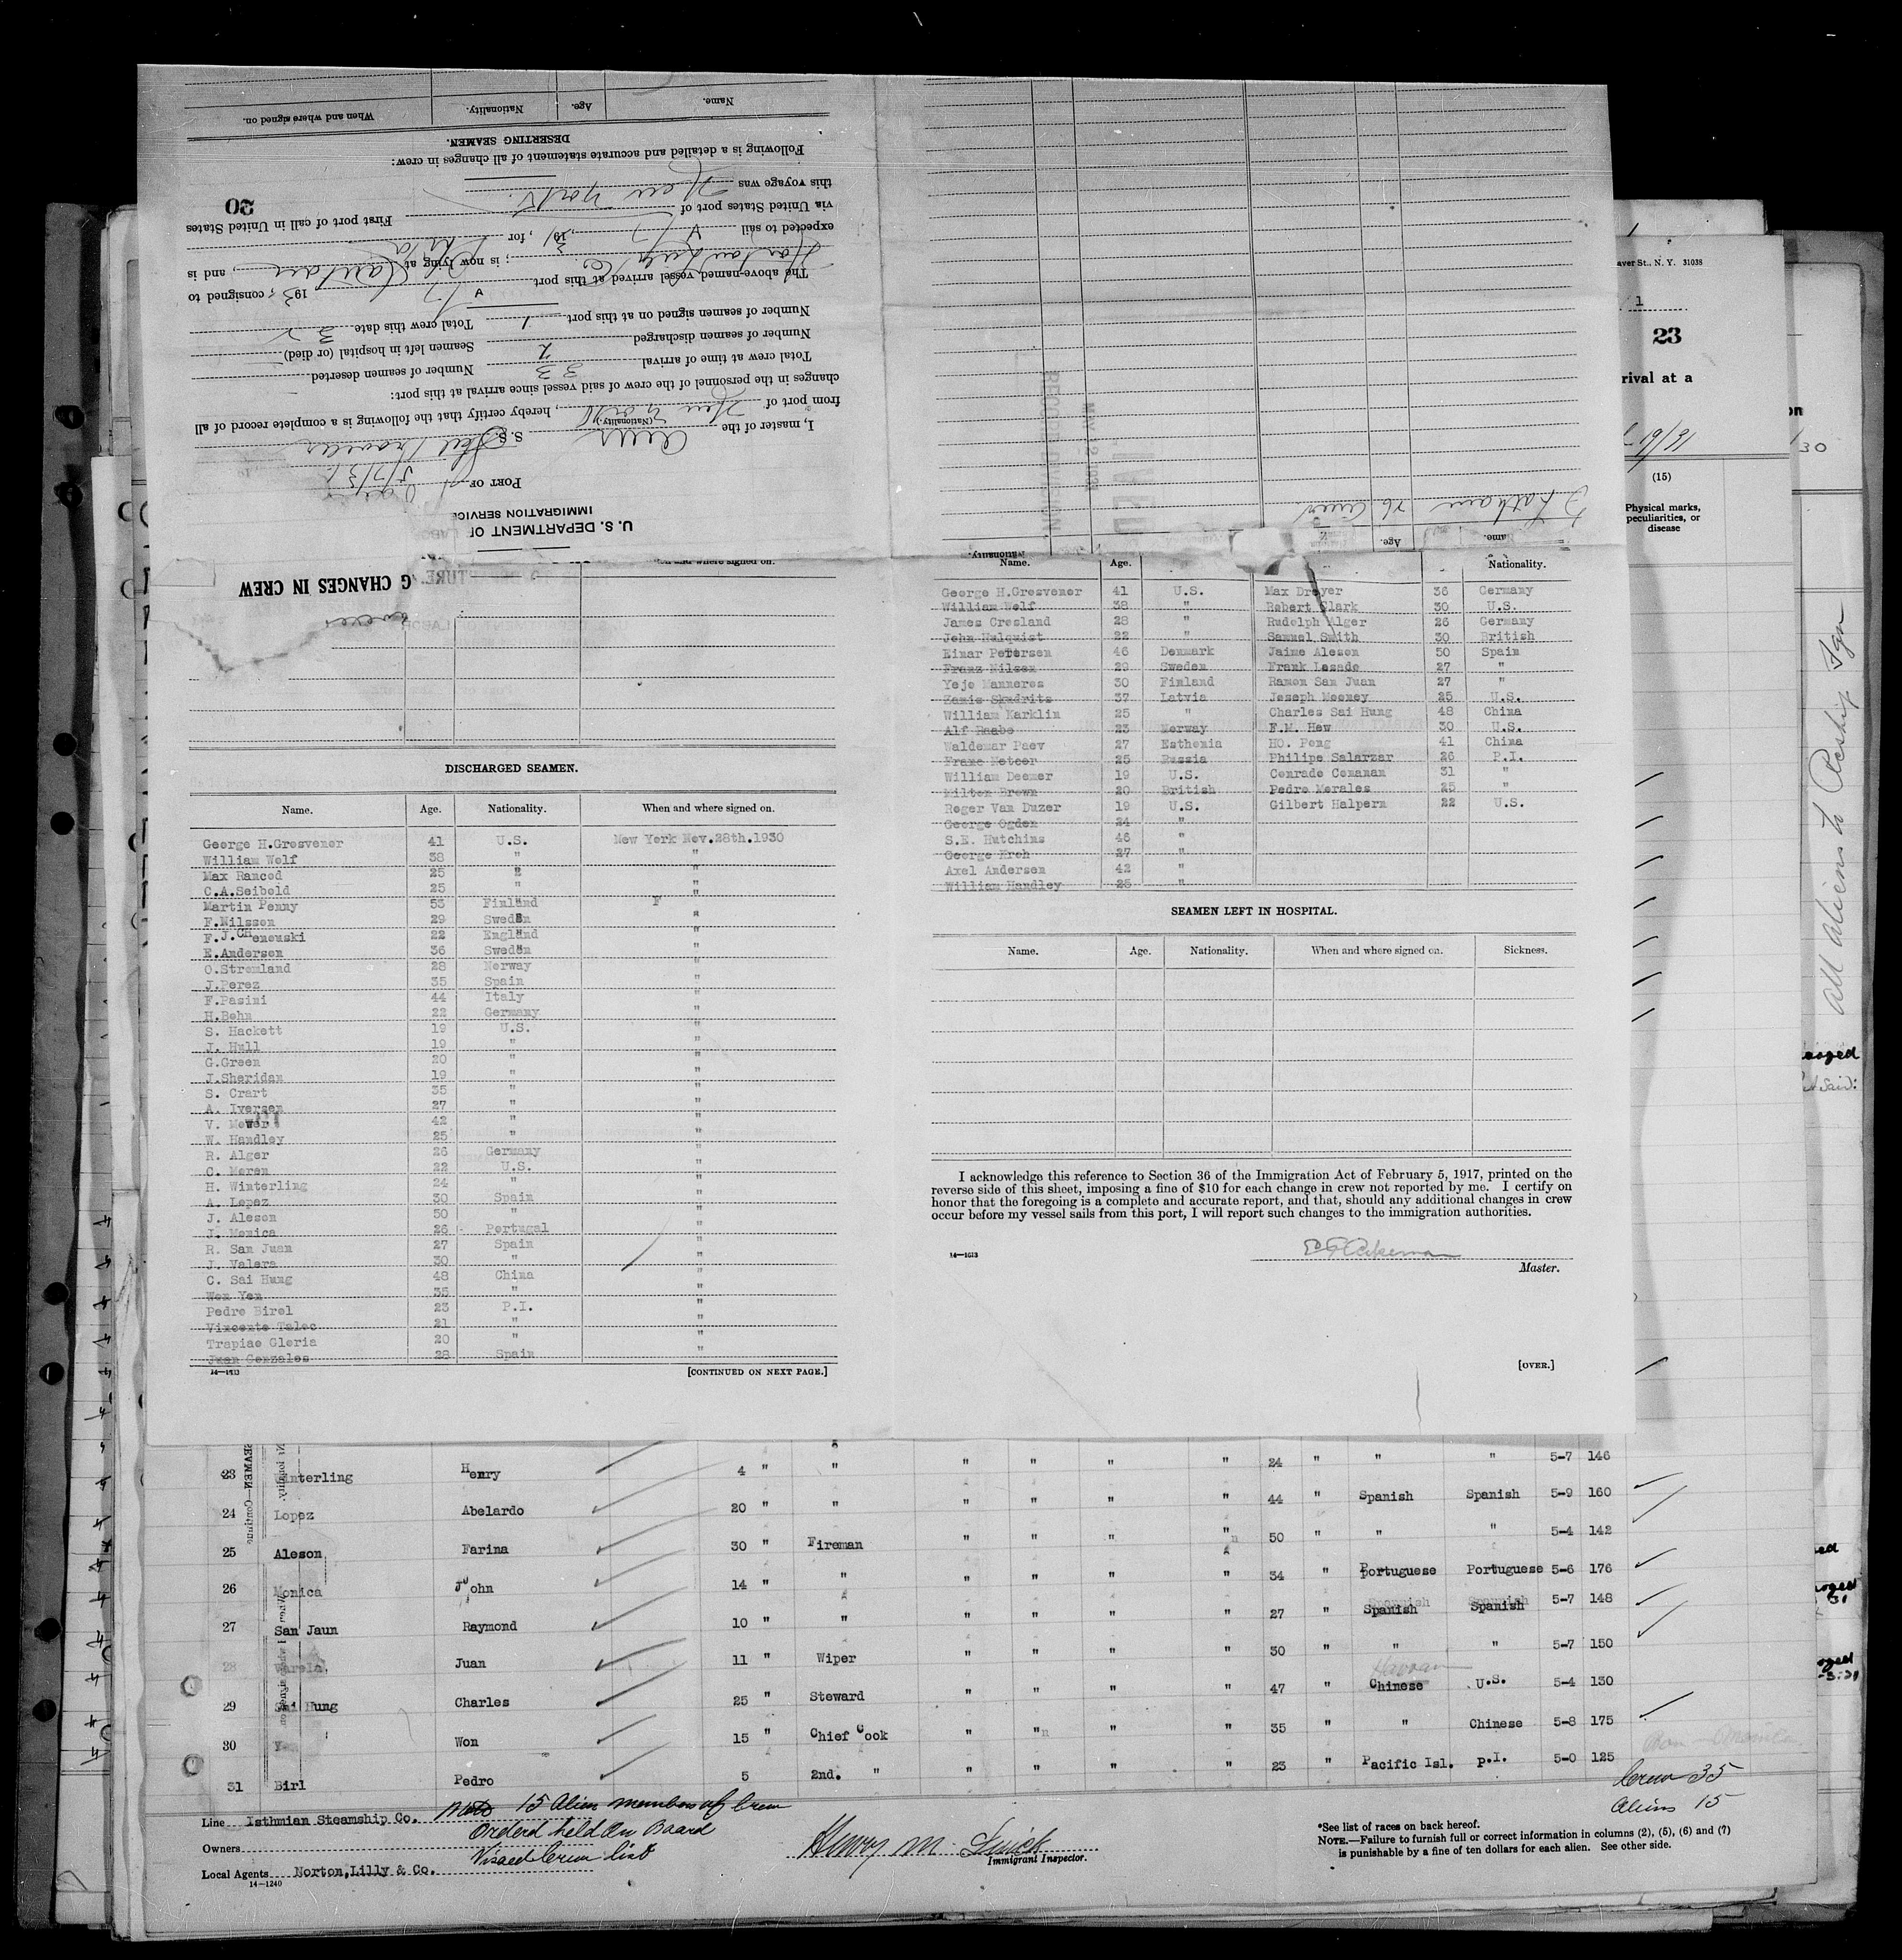 When and where signed on. Nationality. Age. Name.
DESERTING SEAMEN.
Following is a detailed and accurate statement of all changes in crew:
this voyage was New York.
via United States port of First port of call in United States
20
expected to sail , 193 , for Phila
Norton Lilly Co ; is now lying at , and is
The above-named vessel arrived at this port 193 , consigned to
Number of seamen signed on at this port 1 Total crew this date 32
Number of seamen discharged 2 Seamen left in hospital (or died)
Total crew at time of arrival 33 Number of seamen deserted
changes in the personnel of the crew of said vessel since arrival at this port:
from port of New York , hereby certify that the following is a complete record of all
I, master of the Amer (Nationality.) S. S. Steel Traveler
PORT OF
IMMIGRATION SERVICE
U. S. DEPARTMENT OF
G CHANGES IN CREW
DISCHARGED SEAMEN.
Name. Age. Nationality. When and where signed on.
George H.Grosvenor 41 U.S. New York Nov.28th.1930
William Wolf 38 " "
Max Rancod 25 " "
C.A.Seibold 25 " "
Martin Penny 53 Finland "
F.Nilssen 29 Sweden "
F.J.Chenouski 22 England "
E.Andersen 36 Sweden "
O.Stromland 28 Norway "
J.Perez 35 Spain "
F.Pasini 44 Italy "
H.Behn 22 Germany "
S. Hackett 19 U.S. "
J. Hull 19 " "
G.Green 20 " "
J.Sheridan 19 " "
S. Crart 35 " "
A. Iversen 27 " "
V. Mower 42 " "
W. Handley 25 " "
R. Alger 26 Germany "
C. Moren 22 U.S. "
H. Winterling 24 " "
A. Lopez 30 Spain "
J. Aleson 50 " "
J. Monica 26 Portugal "
R. San Juan 27 Spain "
J. Valera 30 " "
C. Sai Hung 48 China "
Won Yen 35 " "
Pedro Birol 23 P.I. "
Vincente Taloc 21 " "
Trapiae Gloria 20 " "
Juan Gonzales 28 Spain "
14—1413 [CONTINUED ON NEXT PAGE.]
26 Amer
Name. Age.
Name. Age. Nationality.
George H.Grosvenor 41 U.S. Max Dreyer 36 Germany
William Wolf 38 " Robert Clark 30 U.S.
James Crosland 28 " Rudolph Alger 26 Germany
John Hulquist 22 " Samuel Smith 30 British
Einar Petersen 46 Denmark Jaime Aleson 50 Spain
Franz Nilsen 29 Sweden Frank Losado 27 "
Yejo Manneros 30 Finland Ramon San Juan 27 "
Zanis Skudrits 37 Latvia Joseph Mooney 25 U.S.
William Karklin 25 " Charles Sai Hung 48 China
Alf Raabe 23 Norway F.M. Haw 30 U.S.
Waldemar Paev 27 Esthonia HO. Pong 41 China
Franc Notcor 25 Russia Philipe Salarzar 26 P.I.
William Deemer 19 U.S. Conrado Comanan 31 "
Milton Brown 20 British Pedro Morales 25 "
Roger Van Duzer 19 U.S. Gilbert Halpern 22 U.S.
George Ogden 24 "
S.E. Hutchins 46 "
George Kroh 27 "
Axel Andersen 42 "
William Handley 25 "
SEAMEN LEFT IN HOSPITAL.
Name. Age. Nationality. When and where signed on. Sickness.
I acknowledge this reference to Section 36 of the Immigration Act of February 5, 1917, printed on the
reverse side of this sheet, imposing a fine of $10 for each change in crew not reported by me. I certify on
honor that the foregoing is a complete and accurate report, and that, should any additional changes in crew
occur before my vessel sails from this port, I will report such changes to the immigration authorities.
14—1413
Master.
[OVER.]
aver St., N. Y. 31038
1
23
rival at a
19/31
(15)
Physical marks,
peculiarities, or
disease
on
30
All Aliens to Reship Fgn
23 Winterling Henry 4 " " " " " " 24 " " " 5-7 146
24 Lopez Abelardo 20 " " " " " " 44 " Spanish Spanish 5-9 160
25 Aleson Farina 30 " Fireman " " " " 50 " " " 5-4 142
26 Monica John 14 " " " " " " 34 " Portuguese Portuguese 5-6 176
27 San Jaun Raymond 10 " " " " " " 27 " Spanish Spanish 5-7 148
28 Varela, Juan 11 " Wiper " " " " 30 " " " 5-7 150
29 Sai Hung Charles 25 " Steward " " " " 47 " Chinese U.S. 5-4 130
30 Won 15 " Chief Cook " " " " 35 " " Chinese 5-8 175
31 Birl Pedro 5 2nd. " " " " " 23 " Pacific Isl. p.I. 5-0 125
Crew 35
Aliens 15
Line Isthmian Steamship Co. Note 15 Alien members of Crew
Ordered held On Board
Owners
Visaed Crew list
Local Agents Norton,Lilly & Co.
14—1240
Henry M.
Immigrant Inspector.
*See list of races on back hereof.
NOTE.—Failure to furnish full or correct information in columns (2), (5), (6) and (7)
is punishable by a fine of ten dollars for each alien. See other side.